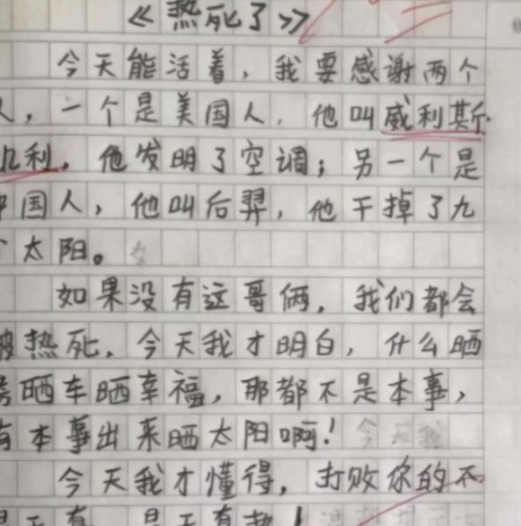 《热死了》
今天能活着，我要感谢两个
人，一个是美国人，他叫威利斯·
凡利，他发明了空调；另一个是
中国人，他叫后羿，他干掉了九
个太阳。
如果没有这哥俩，我们都会
被热死，今天我才明白，什么晒
房晒车晒幸福，那都不是本事，
有本事出来晒太阳啊！今天我
今天我才懂得，打败你的不
是天有